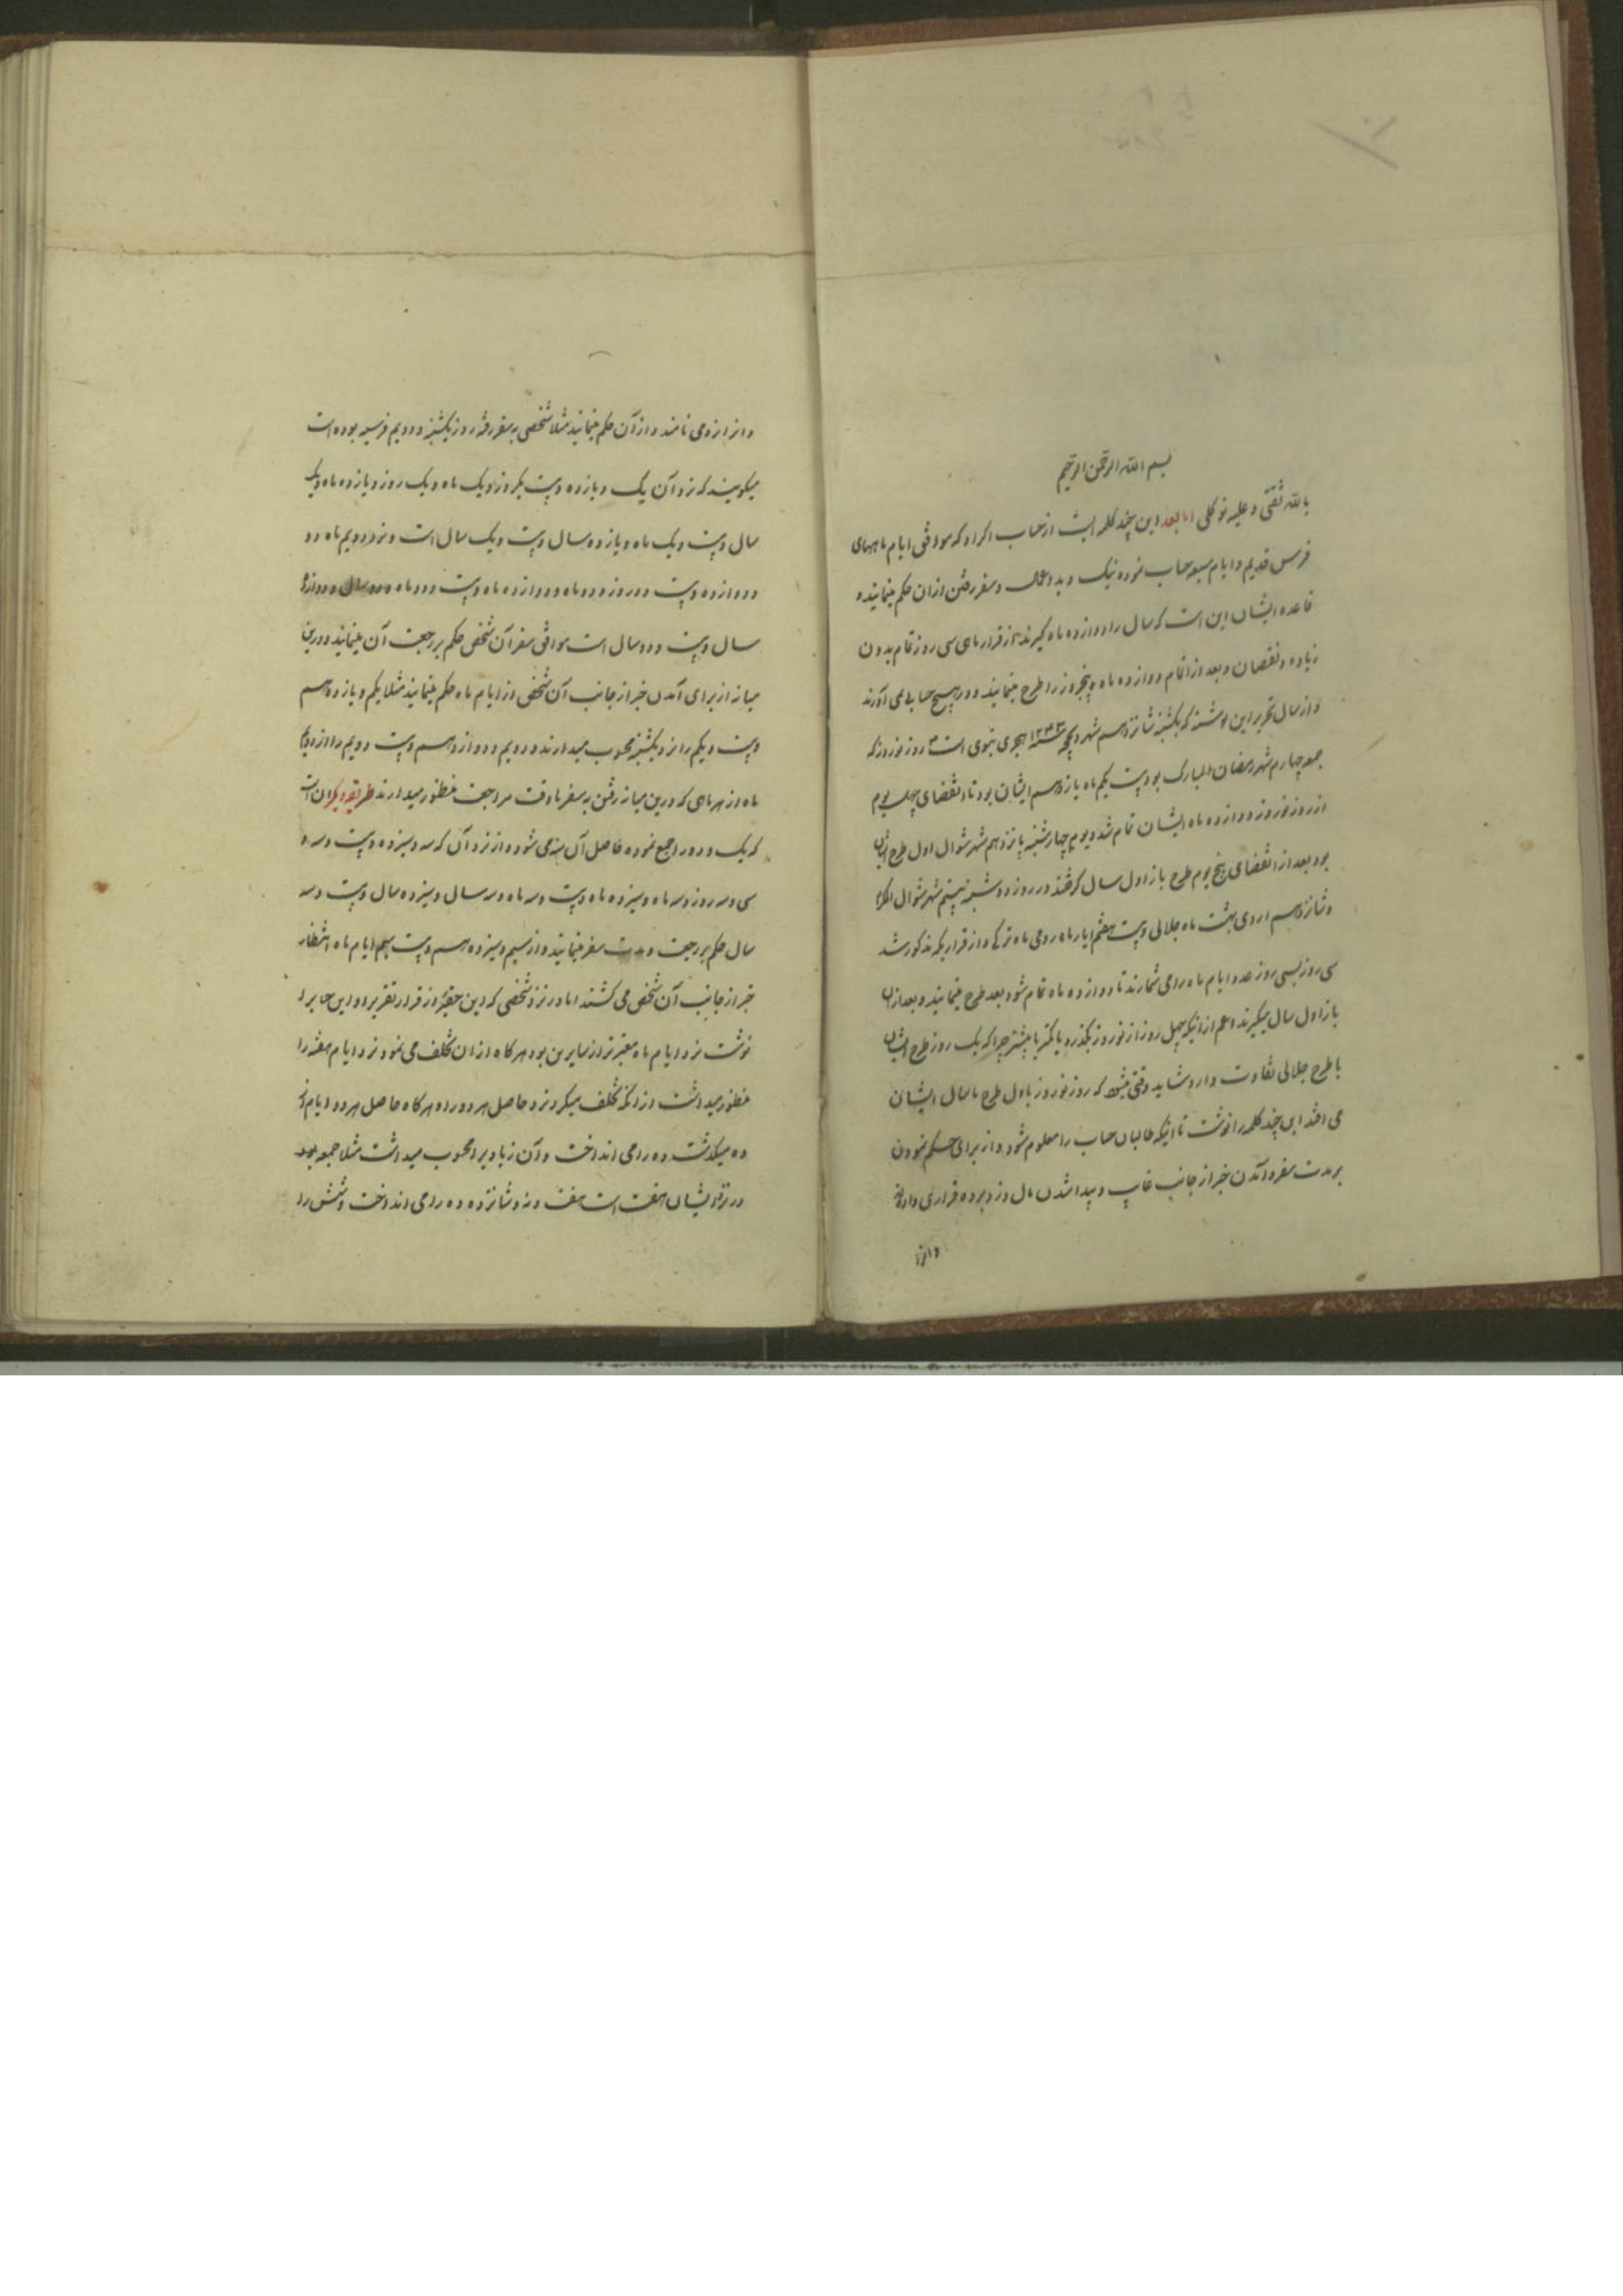 بسم الله الرحمن الرحیم
بالله ثقتی و علیه توکلی اما بعد این چند کلمه ایست از حساب اکراد که موافق ایام ماههای
فرس قدیم و ایام سبعه حساب نموده نیک و بد اعمال و سفر رفتن از آن حکم مینمایند و
قاعده ایشان این است که سال را دوازده ماه گیرند از قرار ماهی سی روز تمام بدون
زیاده و نقصان و بعد از اتمام دوازده ماه پنجروز را طرح مینمایند و در هیچ حسابی نمی آورند
و از سال تحریر این نوشته که یکشنبه شانزدهم شهر ذیحجه ۱۲۳۳ هجری نبوی است روز نوروز که
جمعه چهارم شهر رمضان المبارک بود بیست یکم ماه یازدهم ایشان بود تا انقضای چهل یوم
از روز نوروز دوازده ماه ایشان تمام شد و یوم چهارشنبه پانزدهم شهر شوال اول طرح ایشان
بود بعد از انقضای پنج یوم طرح باز اول سال گرفتند در روز دوشنبه بیستم شهر شوال المکرم
و شانزدهم اردی بهشت ماه جلالی و بیست هفتم ایار ماه رومی ماه ترکی و از قراریکه مذکور شد
سی روز بسی روز عدد ایام ماه را می شمارند تا دوازده ماه تمام شود بعد طرح مینمایند و بعد از آن
باز اول سال میگیرند اعم از اینکه چهل روز از نوروز بگذرد یا کمتر یا بیشتر چرا که یک روز طرح ایشان
با طرح جلالی تفاوت دارد و شاید وقتی میشود که روز نوروز باول طرح یا سال ایشان
می افتد این چند کلمه را نوشت تا اینکه طالبان حساب را معلوم شود و از برای حکم نمودن
بر مدت سفر و آمدن خبر از جانب غایب و پیدا شدن مال دزد برده قراری داده‌اند
و از نزد
و از نزد می نامند و از آن حکم مینمایند مثلا شخصی به سفر رفته روز یکشنبه و دویم فرسیه بوده است
میگویند که نزد آن یک و یازده و بیست یکروز و یک ماه و یک روز و یازده ماه و یک
سال و بیست و یک ماه و یازده سال و بیست و یک سال است و نزد دویم ماه دو
و دوازده و بیست و دو روز و دو ماه و دوازده ماه و بیست و دو ماه و دو سال و دوازده
سال و بیست و دو سال است موافق سفر آن شخص حکم بر رجعت آن مینمایند و در این
میانه از برای آمدن خبر از جانب آن شخص از ایام ماه حکم مینمایند مثلا یکم و یازدهم
و بیست و یکم را نزد یکشنبه محسوب میدارند و دویم و دوازدهم و بیست دویم را از دویم
ماه و از هر ماهی که در این میانه رفتن به سفر تا وقت مراجعت منظور میدارند طریقه دیگر آن است
که یک و دو را جمع نموده حاصل آن سه می شود و از نزد آن که سه و سیزده و بیست و سه و
سی و سه روز و سه ماه و سیزده ماه و بیست و سه ماه و سه سال و سیزده سال و بیست و سه
سال حکم بر رجعت و مدت سفر مینمایند و از سیم و سیزدهم و بیست سیم ایام ماه انتظار
خبر از جانب آن شخص می کشند اما در نزد شخصی که این حقیر از قرار تقریر او این حساب را
نوشت نزد ایام ماه معتبرتر از سایرین بود هرگاه از آن تخلف می نمود نزد ایام هفته را
منظور میداشت از آنکه تخلف میکرد نزد حاصل هر دو را و هرگاه حاصل هر دو ایام از
ده میگذشت ده را می انداخت و آن زیاد را محسوب میداشت مثلا جمعه بود
در نزد ایشان هفت است هفت و نه شانزده ده را می انداخت و شش را